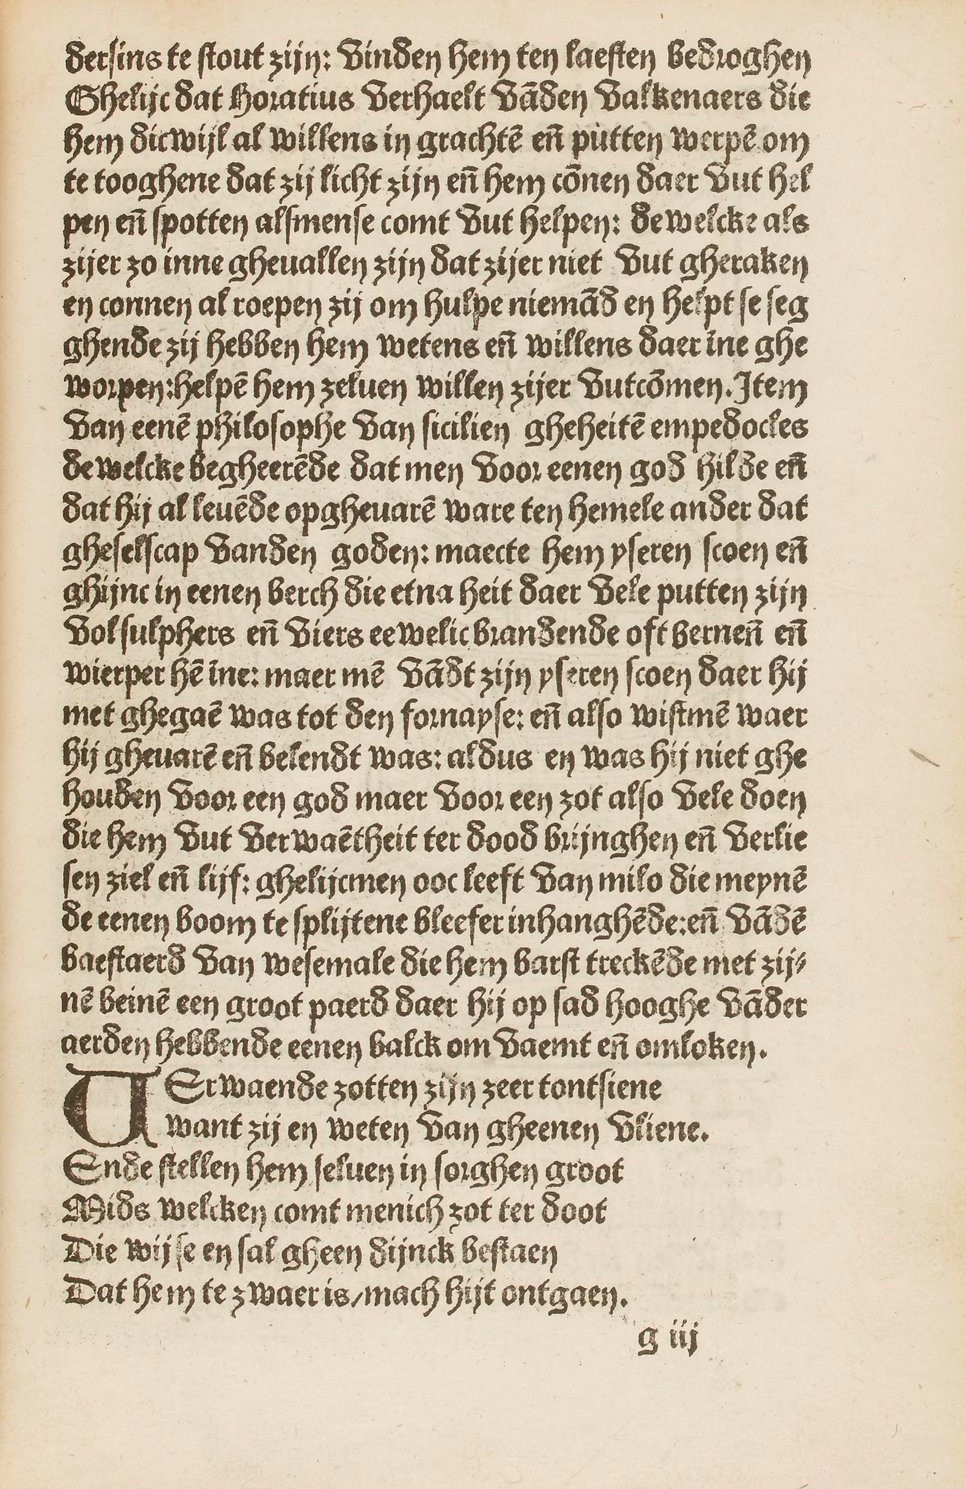 dersins te stout zijn: vinden hem ten laesten bedroghen
Ghelijc dat Horatius verhaelt vāden valkenaers die
hem dicwijl al willens in grachtē eñ putten werpē om
te tooghene dat zij licht zijn eñ hem cōnen daer vut hel
pen eñ spotten alsmense comt vut helpen: de welcke als
zijer zo inne gheuallen zijn dat zijer niet vut gheraken
en connen al roepen zij om hulpe niemād en helpt se seg
ghende zij hebben hem wetens eñ willens daer īne ghe
worpen: helpē hem zeluen willen zijer vutcōmen. Item
van eenē philosophe van sicilien gheheitē empedocles
de welcke begheerēde dat men voor eenen god hilde eñ
dat hij al leuēde opgheuarē ware ten hemele ander dat
gheselscap vanden goden: maecte hem yseren scoen eñ
ghijnc in eenen berch die etna heit daer vele putten zijn
vol sulphers eñ viers eewelic brandende oft berneñ eñ
wierper hē īne: maer mē vādt zijn yseren scoen daer hij
met ghegaē was tot den fornayse: eñ also wistmē waer
hij gheuarē eñ belendt was: aldus en was hij niet ghe
houden voor een god maer voor een zot also vele doen
die hem vut verwaētheit ter dood brijnghen eñ verlie
sen ziel eñ lijf: ghelijcmen ooc leeft van milo die meynē
de eenen boom te splijtene bleefer inhanghēde: eñ vādē
baestaerd van wesemale die hem barst treckēde met zij⸗
nē beinē een groot paerd daer hij op sad hooghe vāder
aerden hebbende eenen balck om vaemt eñ omloken.
VErwaende zotten zijn zeer tontsiene
want zij en weten van gheenen vliene.
Ende stellen hem seluen in sorghen groot
Mids welcken comt menich zot ter doot
Die wijse en sal gheen dijnck bestaen
Dat hem te zwaer is/mach hijt ontgaen.
g iij